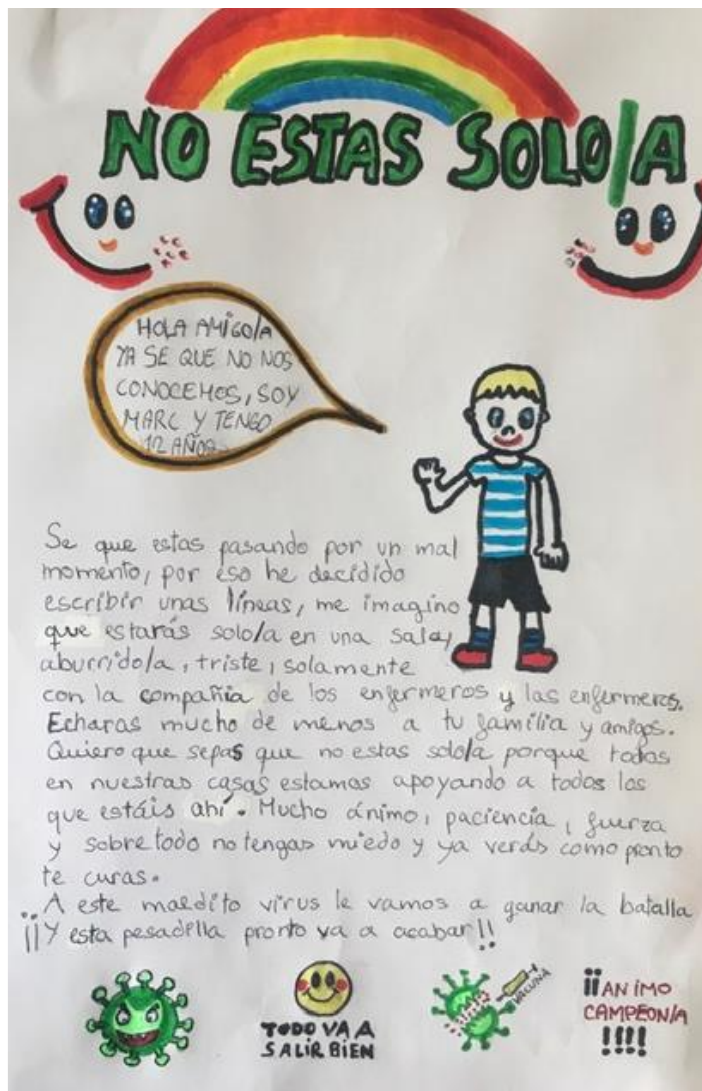 NO ESTAS SOLO/A
HOLA AMIGO/A
YA SE QUE NO NOS
CONOCEMOS, SOY
MARC Y TENGO
12 AÑOS
Se que estas pasando por un mal
momento, por eso he decidido
escribir unas líneas, me imagino
que estarás solo/a en una sala,
aburrido/a, triste, solamente
con la compañia de los enfermeros y las enfermeras.
Echaras mucho de menos a tu familia y amigos.
Quiero que sepas que no estas solo/a porque todos
en nuestras casas estamos apoyando a todos los
que estáis ahí. Mucho ánimo, paciencia, fuerza
y sobre todo no tengas miedo y ya verás como pronto
te curas.
A este maldito virus le vamos a ganar la batalla
¡¡Y esta pesadilla pronto va a acabar!!
TODO VA A
SALIR BIEN
VACUNA
¡¡ANIMO
CAMPEON/A
!!!!